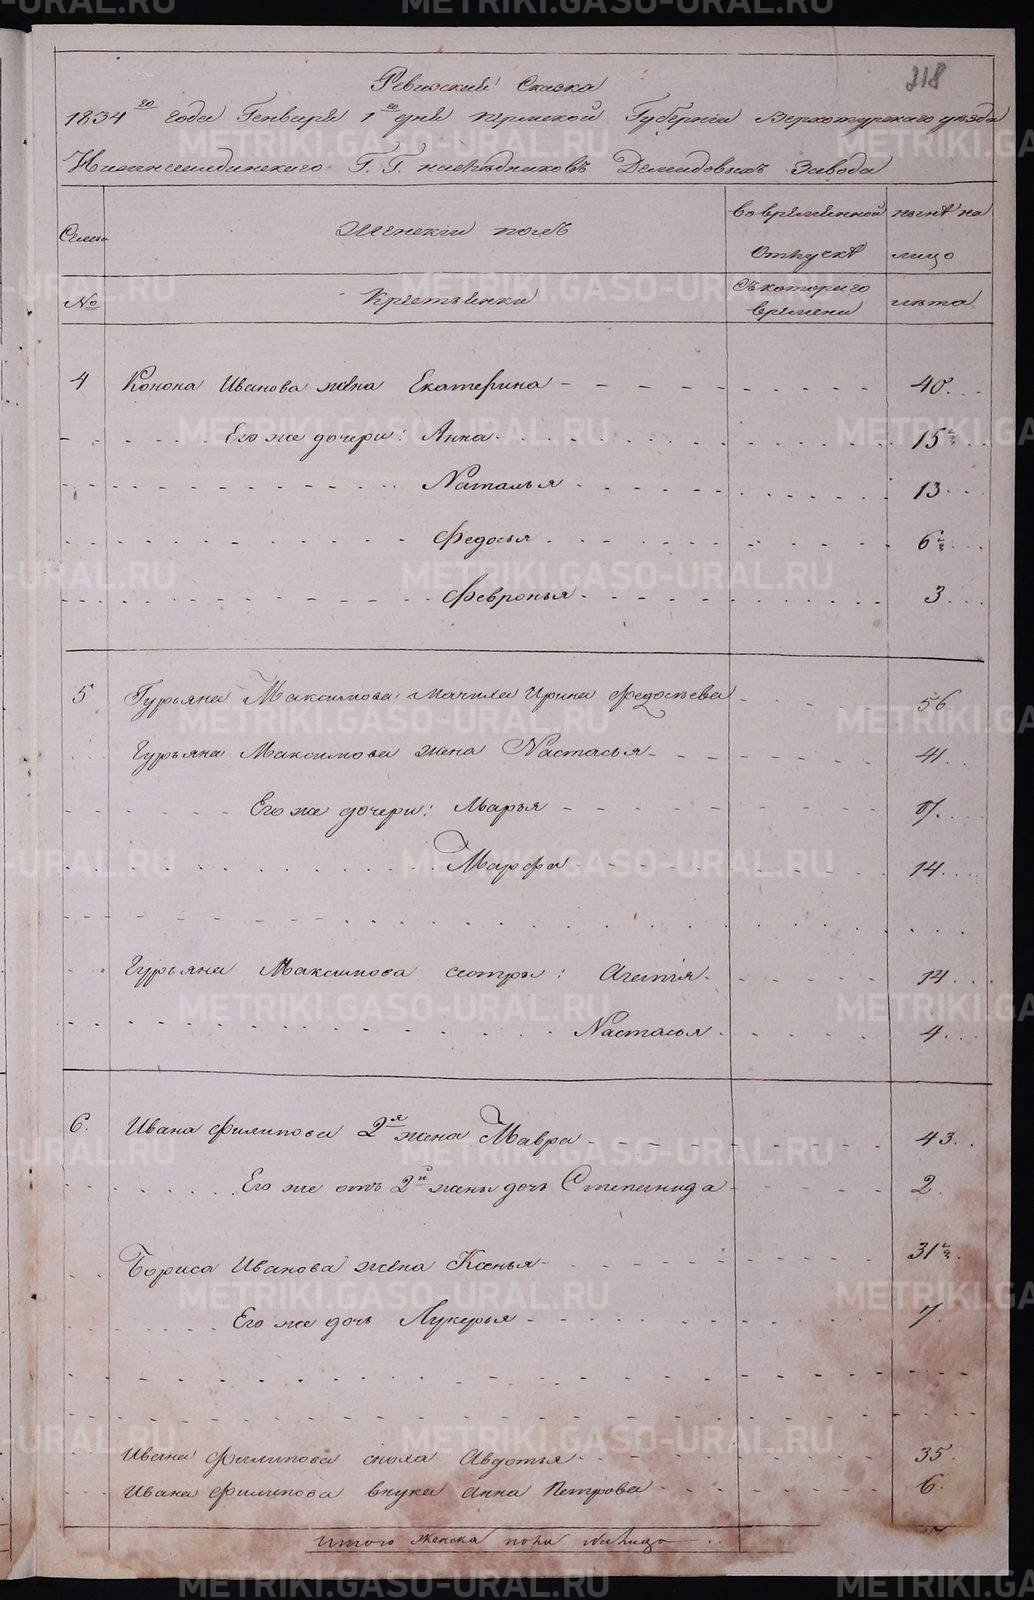 218
Ревижский Сказка
1834го года Генваря 1го дня Пермской Губернiи Верхотурскаго уѣзда
Г. Г. наслѣдниковъ Демидовыхъ Завода
Семьи
Женскiй полъ
во временной отлучкѣ
нынѣ на лицо
№
Крестьянки
Съ котораго времени
лѣта
4 Конона Иванова жена Екатерина 40
Его же дочери: Анна 15 1/2
Наталья 13
Федосья 6 1/2
Февронья 3
5 Гурьяна Максимова Мачиха Ирина Федосѣева 56
Гурьяна Максимова жена Настасья 41
Его же дочери: Марья
Марфа 14
Гурьяна Максимова сестры: Агапiя 14
Настасья 4
6. Ивана Филипова 2я жена Мавра 43
Его же отъ 2й жены дочь Степанида 2
Бориса Иванова жена Ксенья 31 1/2
Его же дочь Лукерья 7
Ивана Филипова сноха Авдотья 35
Ивана Филипова внука Анна Петрова 6
итого женска пола на лицо
METRIKI.GASO-URAL.RU